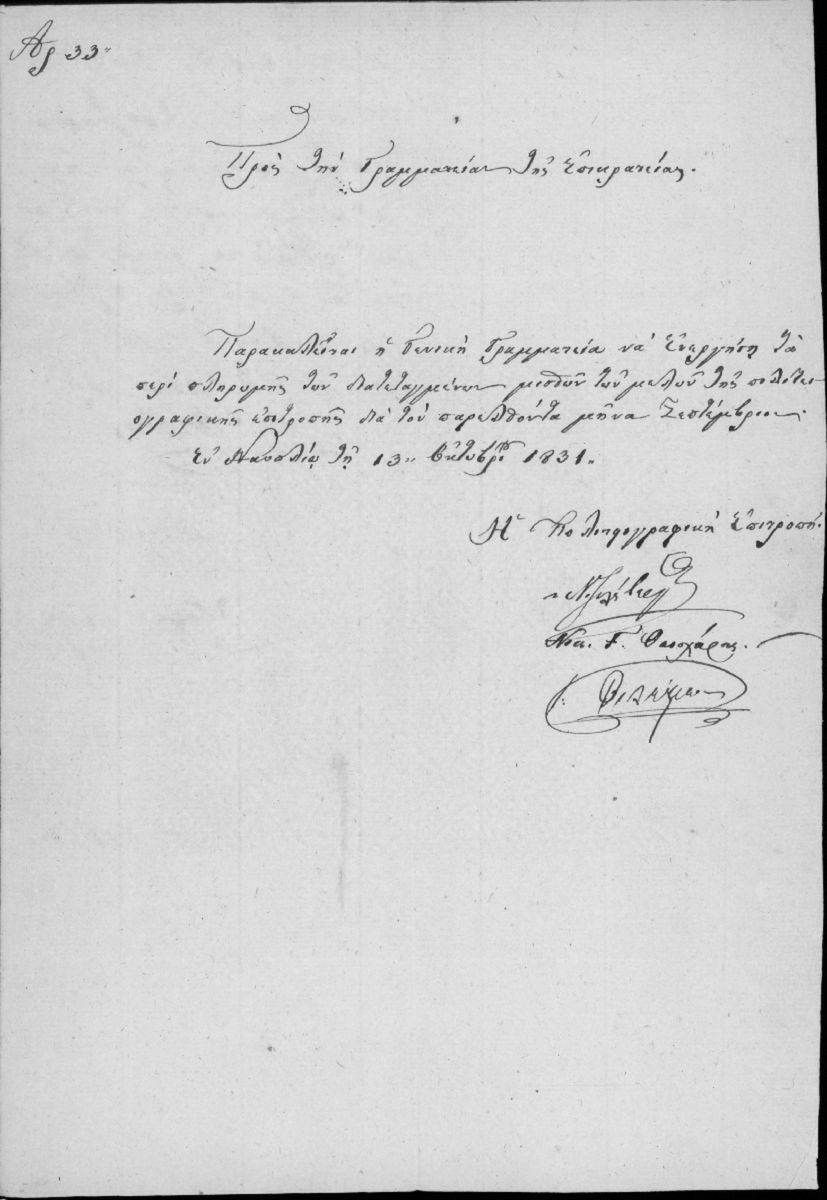 Αρ 33"
Πρὸς τὴν Γραμματείαν τῆς Ἐπικρατείας.
Παρακαλεῖται ἡ Γενικὴ Γραμματεία νὰ ἐνεργήσῃ τὰ
περὶ πληρωμῆς τῶν διατεταγμένων μισθῶν τῶν μελῶν τῆς πολιτει-
ογραφικῆς ἐπιτροπῆς διὰ τὸν παρελθόντα μῆνα Σεπτέμβριον.
Ἐν Ναυπλίῳ τῇ 13" Ὀκτωβρίου 1831"
Ἡ Πολιτειογραφικὴ Ἐπιτροπή.
Νικ. Γ. Θεοχάρης.